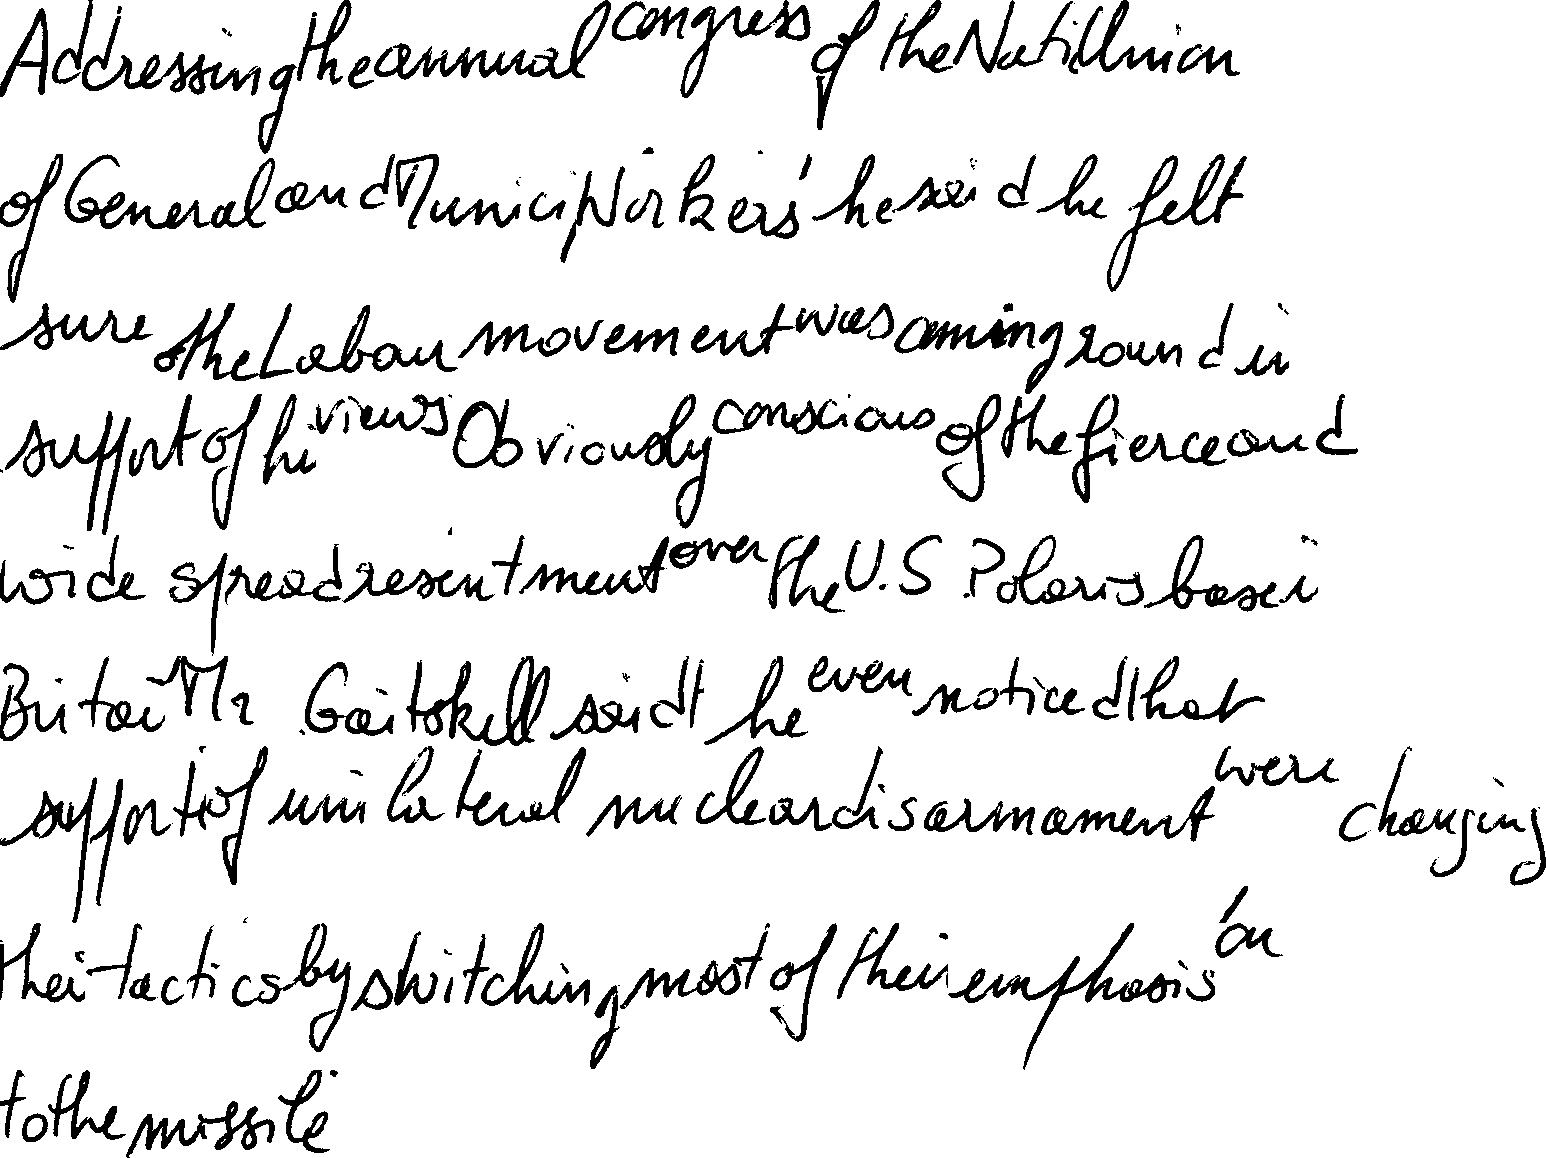 Addressing the annual congress of the Natil Union
of General and Munici Workers' he said he felt
sure the Labour movement was coming round in
support of hi views Obviously conscious of the fierce and
wide spread resentment over the U.S Polaris base i
Britai Mr Gaitskell said he even noticed that
support of unilateral nuclear disarmament were changing
thei tactics by switching most of their emphasis on
to the missile